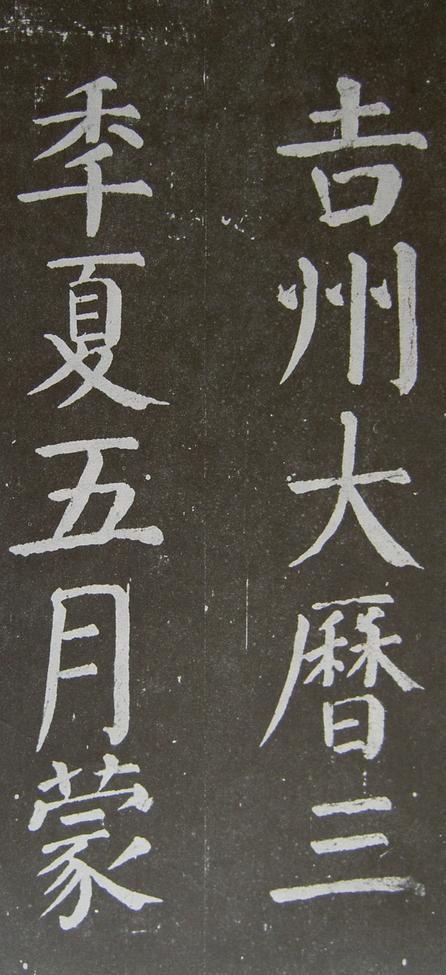 吉州大曆三
季夏五月蒙